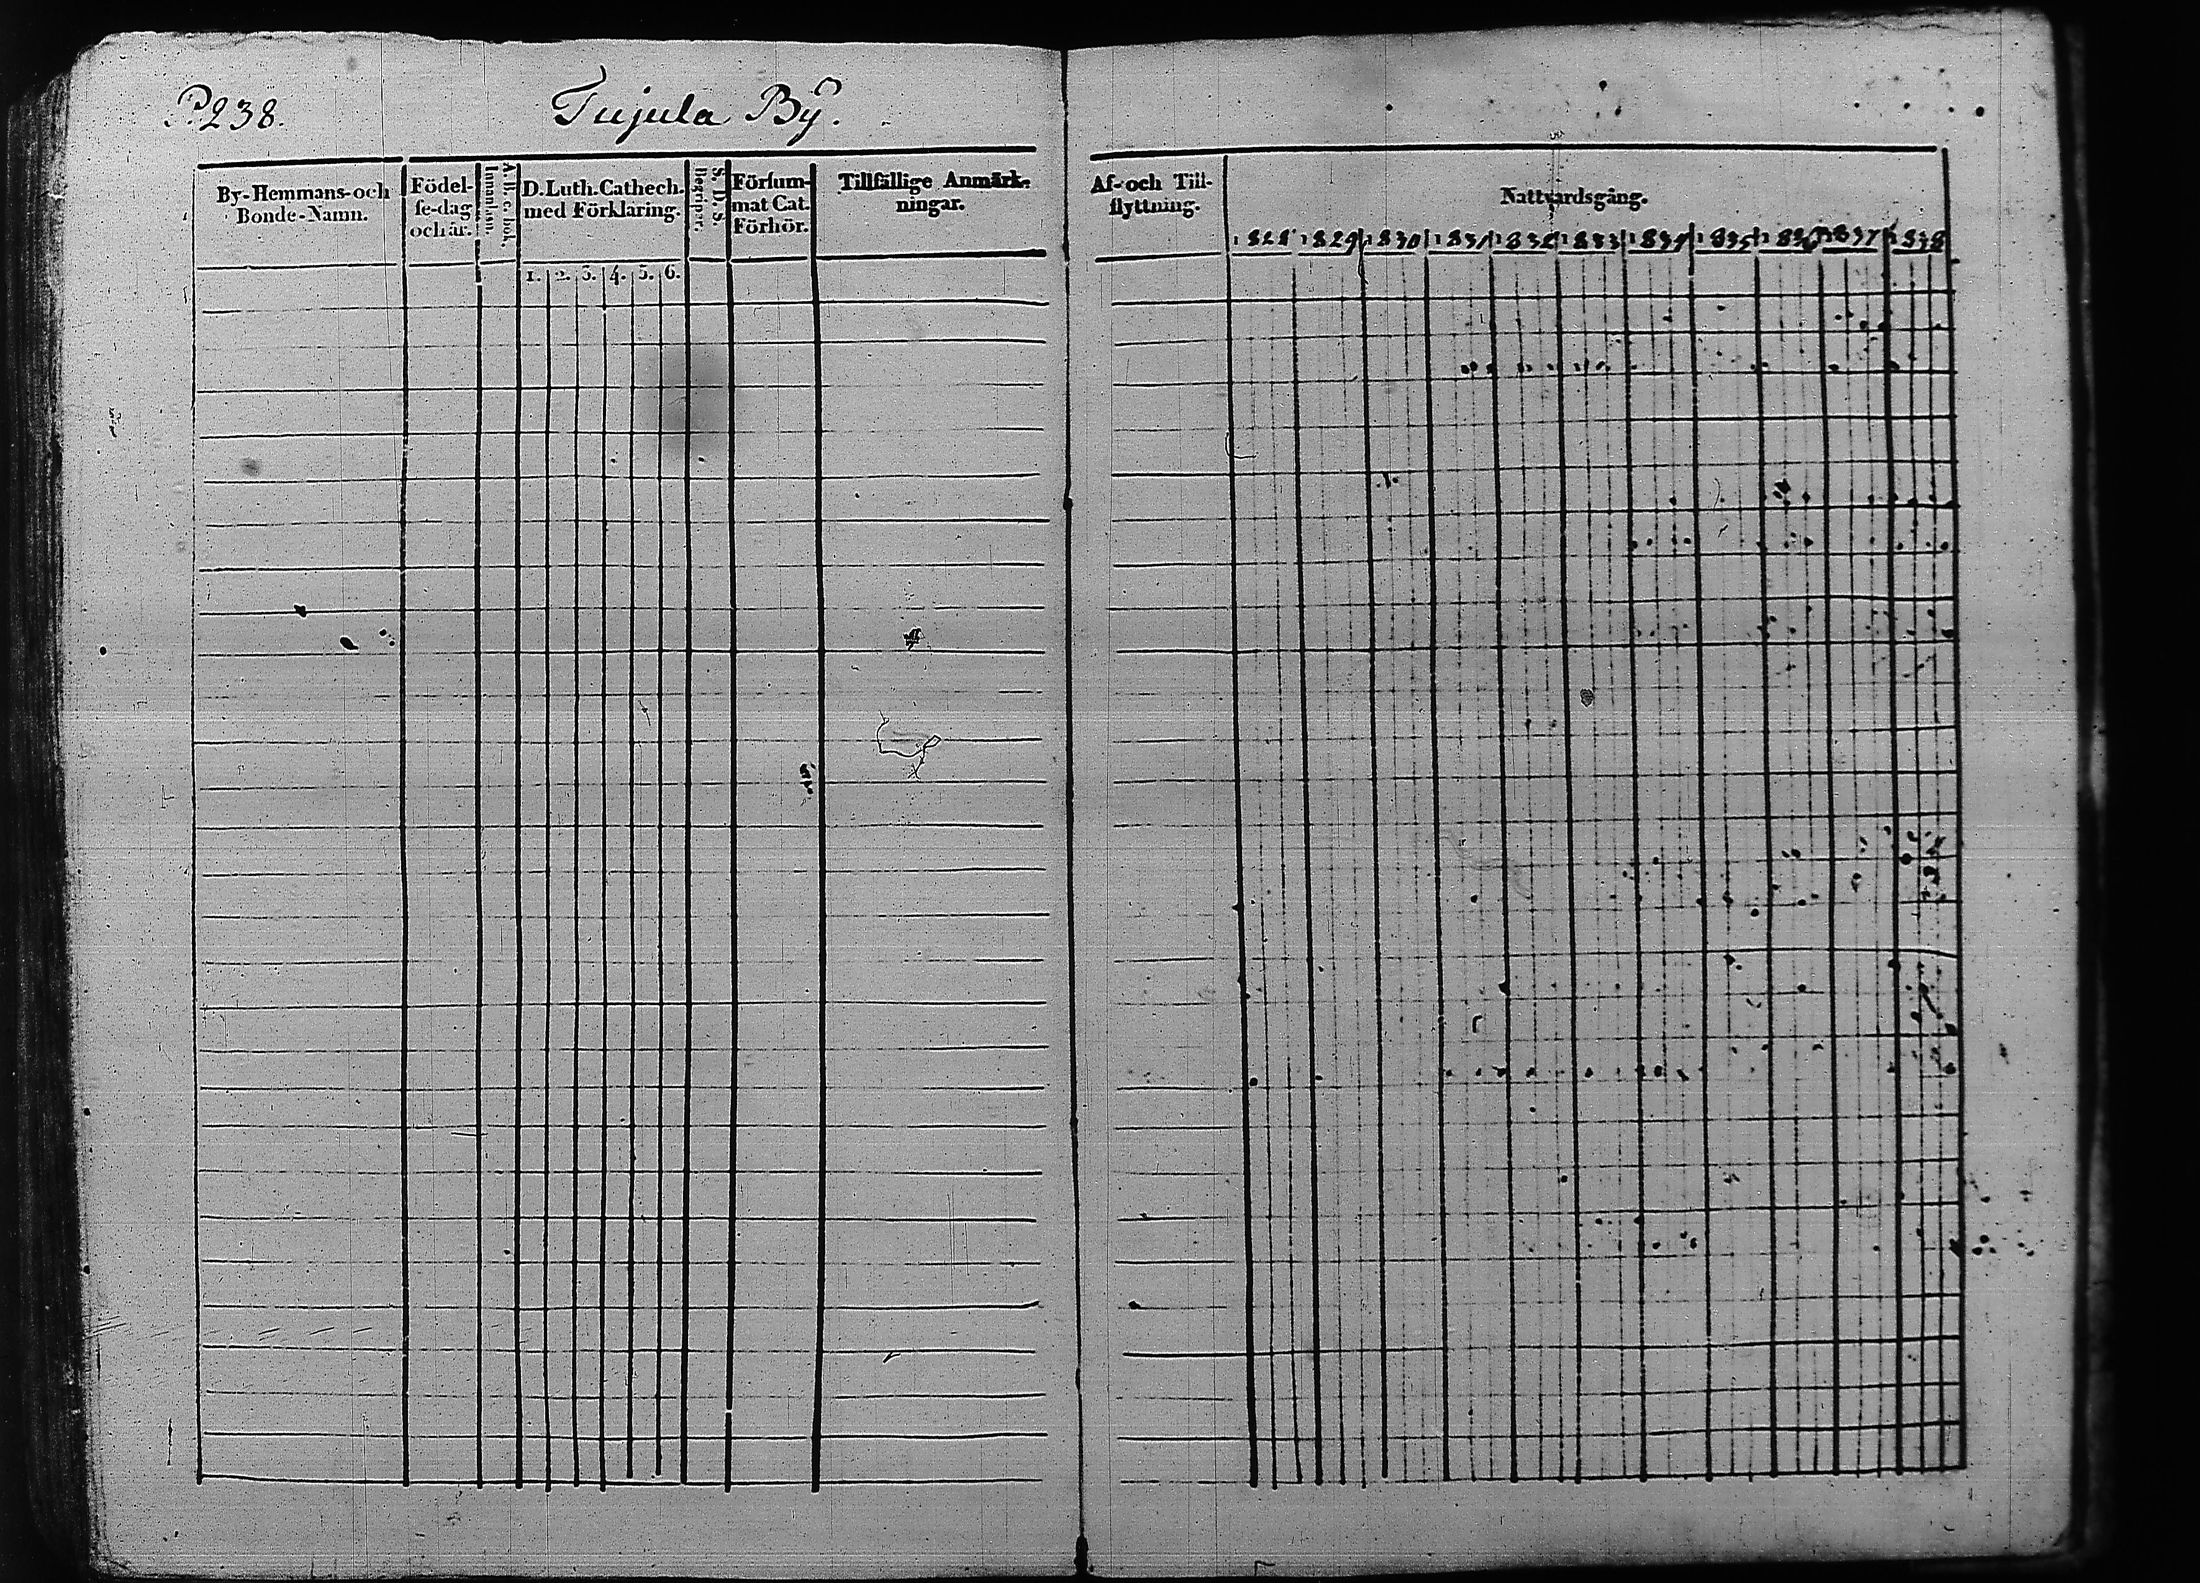 P. 238.
Tujula By.
By-Hemmans-och
Bonde-Namn.
Födel-
se-dag
och år.
Innanläsn.
A. B. c. bok.
D. Luth. Cathech.
med Förklaring.
1. 2. 3. 4. 5. 6.
Begriper.
S. D. S.
Försum-
mat Cat.
Förhör.
Tillfällige Anmärk-
ningar.
Af- och Till-
flyttning.
Nattvardsgång.
1828 1829 1830 1831 1832 1833 1834 1835 1836 1837 1838